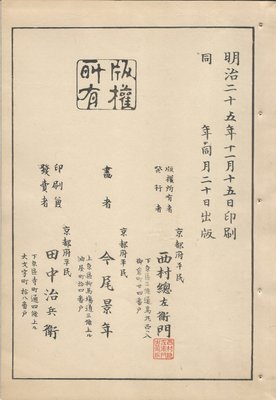 明治二十五年十一月十五日印刷
同年同月二十日出版
版權所有
版權所有者
發行者
京都府平民
西村總左衞門
畫者
京都府平民
今尾景年
上京區柳馬塲通三條上ル
油屋町廿四番戸
印刷兼
發賣者
京都府平民
田中治兵衞
下京區寺町通四條上ル
大文字町十八番戸